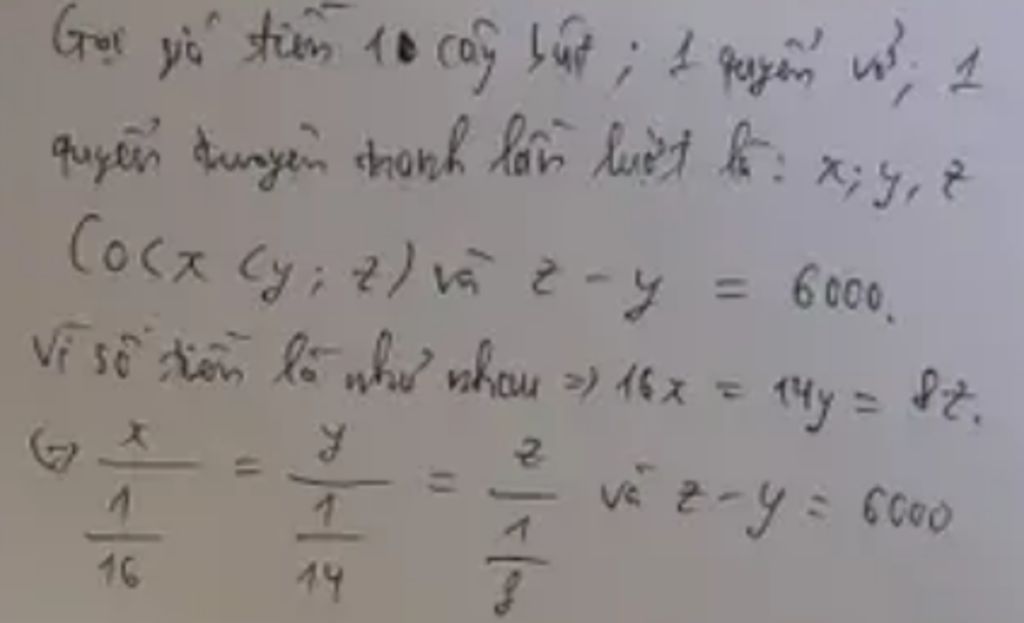 Gọi giá tiền 1 cây bút ; 1 quyển vở ; 1
quyển truyện tranh lần lượt là : x ; y , z
(0 < x < y ; z) và z - y = 6000.
Vì số tiền là như nhau => 16x = 14y = 8z.
<=> x/(1/16) = y/(1/14) = z/(1/8) và z - y = 6000